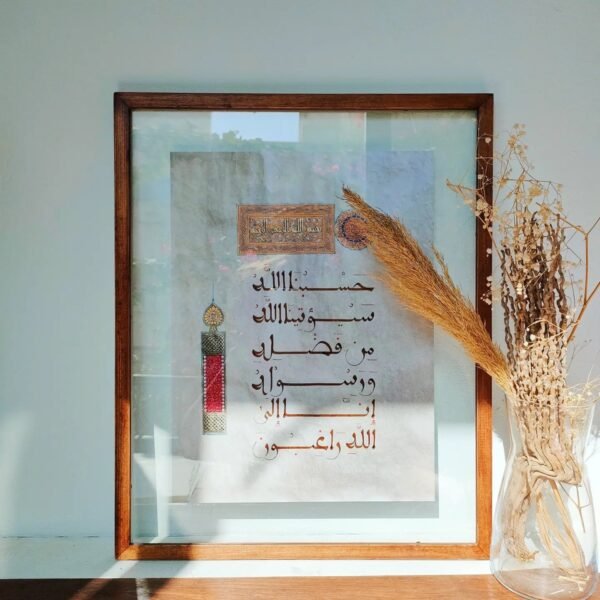 حَسْبُنَا اللَّهُ
سَيُؤْتِينَا اللَّهُ
مِن فَضْلِهِ
وَرَسُولُهُ
إِنَّا إِلَى
اللَّهِ رَاغِبُونَ